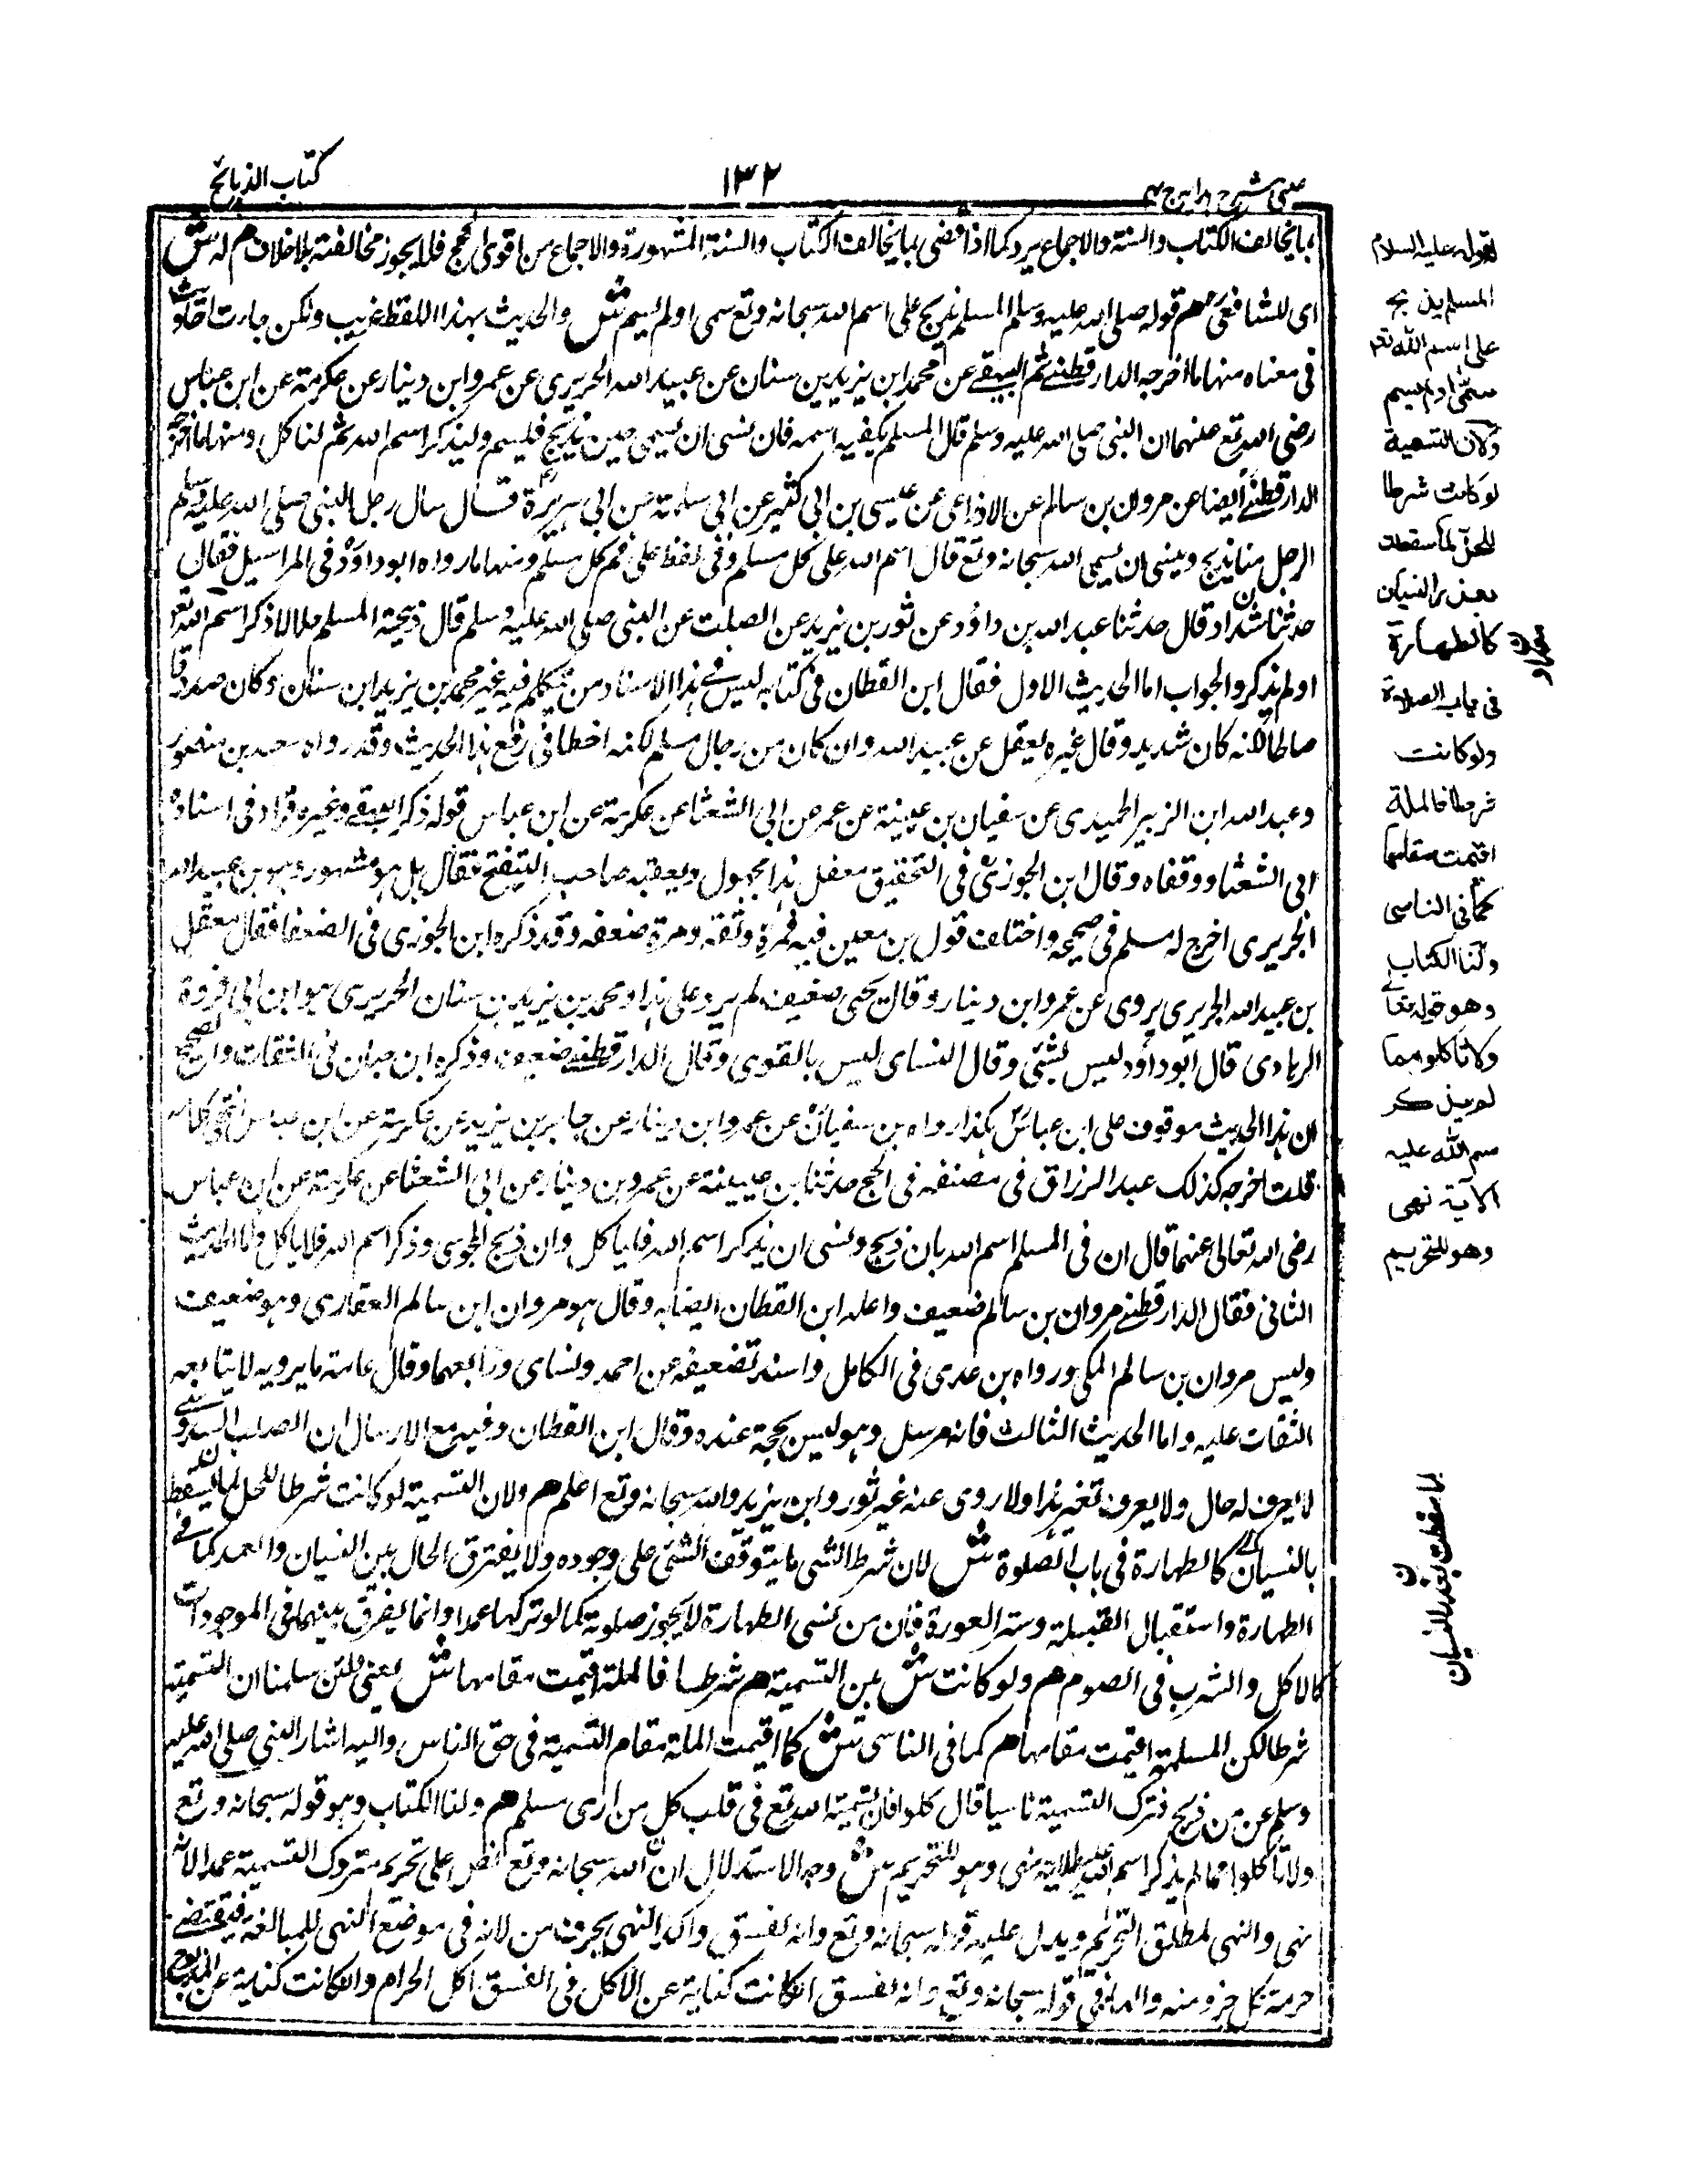 عینی شرح ہدایہ ج ۴
۱۳۲
كتاب الذبائح
بما يخالف الكتاب والسنة والاجماع يرد كما اذا قضى بما يخالف الكتاب والسنة المشهورة والاجماع من اقوى الحجج فلا يجوز مخالفته بلا خلاف هم له ش
اى للشافعى هم قوله صلى الله عليه وسلم المسلم يذبح على اسم الله سبحانه وتع سمى او لم يسم ش والحديث بهذا اللفظ غريب ولكن جارت احاديث
فى معناه منها ما اخرجه الدارقطنے ثم البيهقے عن محمد ابن يزيد بن سنان عن عبيد الله الحريرى عن عمرو ابن دينار عن عكرمة عن ابن عباس
رضى الله تع عنهما ان النبى صلى الله عليه وسلم قال المسلم يكفيه اسمه فان نسى ان يسمى حين يذبح فليسم وليذكر اسم الله ثم لناكل ومنها ما اخرجه
الدارقطنے ايضا عن مروان بن سالم عن الاذاعى عن عيسى بن ابى كثير عن ابى سلمة عن ابى هريرة قال سال رجل النبى صلى الله عليه وسلم
الرجل منا يذبح وينسى ان يسمى الله سبحانه وتع قال اسم الله على كل مسلم وفى لفظ على فم كل مسلم ومنها ما رواه ابو داؤد فى المراسيل فقال
حدثنا شداد قال حدثنا عبد الله بن داؤد عن ثور بن يزيد عن الصلت عن النبى صلى الله عليه وسلم قال ذبيحة المسلم حلالا ذكر اسم الله تع
او لم يذكر والجواب اما الحديث الاول فقال ابن القطان فى كتابه ليس فے هذا الاسناد من يتكلم فيه غير محمد بن يزيد ابن سنان وكان صدوقا
صالحا لكنه كان شديد وقال غيره يعقل عن عبيد الله وان كان من رجال مسلم لكنه اخطا فى رفع هذا الحديث وقد رواه سعد بن منصور
وعبد الله ابن الزبير الحميدى عن سفيان بن عيينة عن عمر عن ابى الشعثا عن عكرمة عن ابن عباس قوله ذكر البيهقے وغيره فزاد فى اسناده
ابى الشعثا ووقفاه وقال ابن الجوزى فى التحقيق معقل هذا مجهول ويعقبه صاحب التيقيح فقال بل هو مشهور وهو بن عبيد الله
الجريرى اخرج له مسلم فى صحيحه واختلف قول بن معين فيه فمرة وثقه ومرة ضعفه وقد ذكره ابن الجوزى فى الضعفا فقال معقل
بن عبيد الله الجريرى يروى عن عمرو ابن دينار وقال يحيى ضعيف لم يرد على هذا ومحمد بن يزيد بن سنان الحريرى هو ابن ابى فروة
الرهادى قال ابو داؤد ليس بشئى وقال النساى ليس بالقوى وقال الدارقطنے ضعيف وذكره ابن حبان فى الثقات والصحيح
ان هذا الحديث موقوف على ابن عباس هكذا رواه بن سفيان عن عمرو ابن دينار عن جابر بن يزيد عن عكرمة عن ابن عباس انتهى كلامه
قلت اخرجه كذلك عبد الرزاق فى مصنفه فى الحج حدثنا بن عيينة عن عمرو بن دينار عن ابى الشعثا عن عكرمة عن ابن عباس
رضى الله تعالى عنهما قال ان فى المسلم اسم الله بان ذبح ونسى ان يذكر اسم الله فلياكل وان ذبح المجوسى وذكر اسم الله فلا ياكل واما الحديث
الثانى فقال الدارقطنے مروان بن سالم ضعيف واعله ابن القطان ايضا به وقال هو مروان ابن سالم العفارى وهو ضعيف
وليس مروان بن سالم المكى ورواه بن عدى فى الكامل واسند تضعيفه عن احمد ونساى ورابعهما وقال عامة ما يرويه لا يتابعه
الثقات عليه واما الحديث الثالث فانه مرسل وهو ليس بحجة عنده وقال ابن القطان وفيه مع الارسال ان الصلت السدوسے
لا يعرف له حال ولا يعرف تغير هذا ولا روى عنه غير ثور وابن يزيد والله سبحانه وتع اعلم هم ولان التسمية لو كانت شرطا للحل لما سقط
بالنسيان كالطهارة فى باب الصلوة ش لان شرط الشى ما يتوقف الشئى على وجوده ولا يفترق الحال بين النسيان والعمد كما فے
الطهارة واستقبال القبلة وستر العورة فان من نسى الطهارة لا يجوز صلوته كما لو تركها عمدا وانما يفرق بينهما فى الموجودات
كالاكل والشرب فى الصوم هم ولو كانت ش عين التسمية هم شرطا فالملة اقيمت مقامها ش يعنى ولئن سلمنا ان التسمية
شرطا لكن المسلمة اقيمت مقامها هم كما فى الناسى ش كما اقيمت الملة مقام التسمية فى حق الناس واليه اشار النبى صلى الله عليه
وسلم عن من ذبح فترك التسمية ناسيا قال كلوا فان تسمية الله تع فى قلب كل من ارى مسلم هم ولنا الكتاب وهو قوله سبحانه وتع
ولا تاكلوا مما لم يذكر اسم الله عليه الاية نهى وهو للتحريم ش وجه الاستدلال ان الله سبحانه وتع نص على تحريم متروك التسمية عمدا لانه
نهى والنهى لمطلق التحريم ويدل عليه قوله سبحانه وتع وانه لفسق واكد النهى بحرف من لانه فى موضع النهى للمبالغة فيقتضے
حرمة كل جزو منه والهاء فى قوله سبحانه وتع وانه لفسق ان كانت كناية عن الاكل فى الفسق اكل الحرام وان كانت كناية عن المذبوح
لقوله عليه السلام
المسلم يذبح
على اسم الله تعم
سمّى او لم يسم
ولان التسمية
لو كانت شرطا
للحل لما سقطت
بعذر النسيان
كالطهارة
فى باب الصلاة
ولو كانت
شرطا فالملة
اقيمت مقامها
كما فى الناسى
ولنا الكتاب
وهو قوله تعالے
ولا تاكلوا مما
لم يذكر
اسم الله عليه
الآية نهى
وهو للتحريم
لما سقطت بعذر النسيان